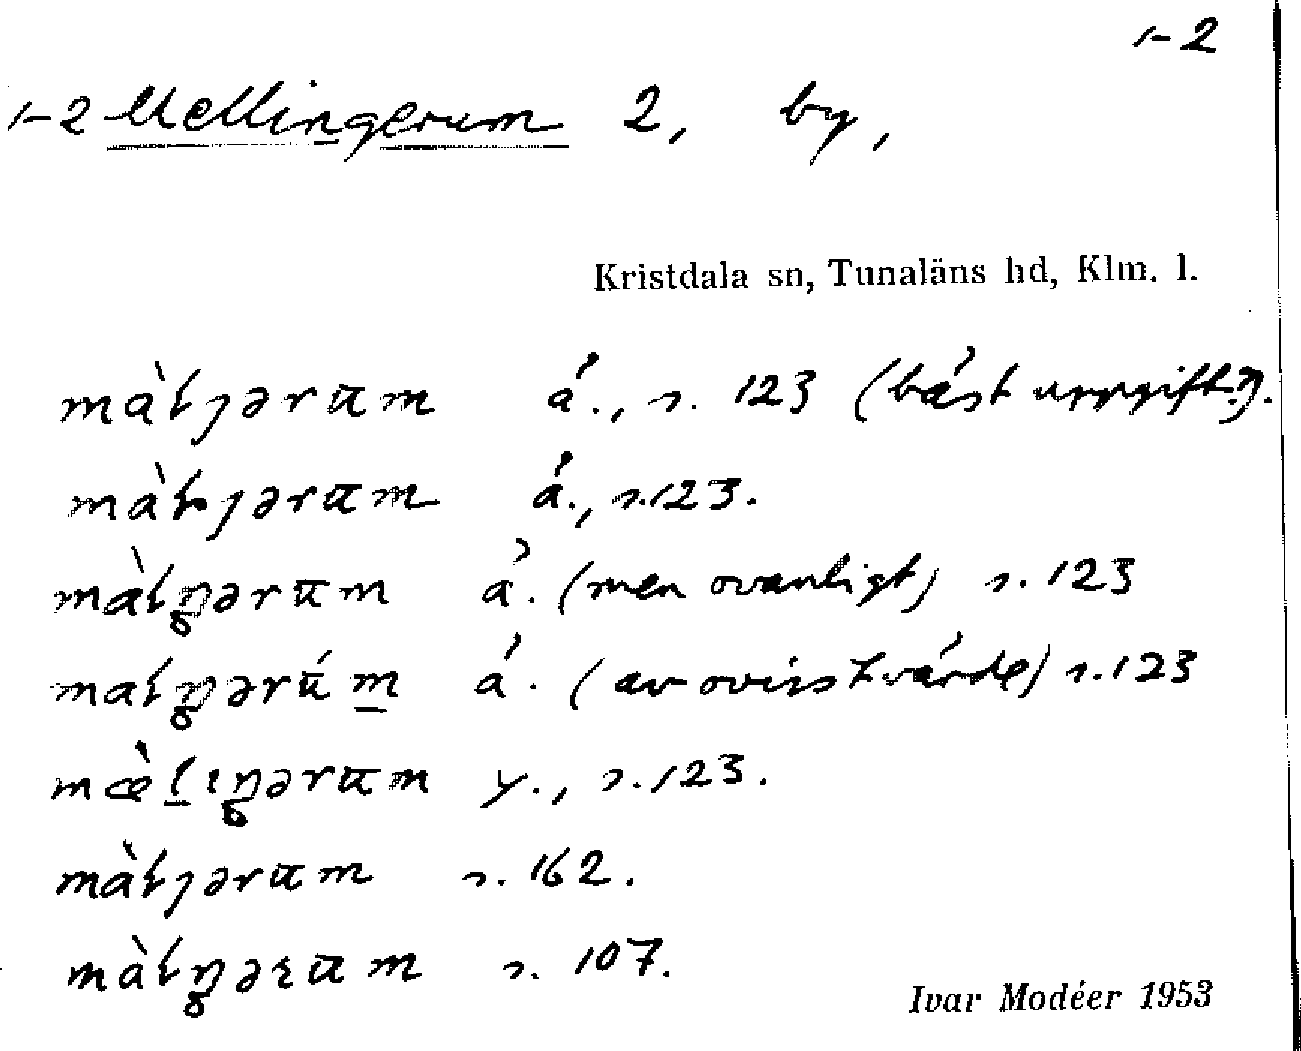 1-2
1-2 Mellingerum 2, by,
Kristdala sn, Tunaläns hd, Klm. l.
màłjərūm á., s. 123 (bäst uppgift.?).
màłjərūm á., s. 123.
màłŋərūm á. (men ovanligt) s. 123
małŋərū́m á. (av ovisst värde) s. 123
mæ̀lıŋərūm y., s. 123.
màłjərūm s. 162.
màłŋərūm s. 107.
Ivar Modéer 1953